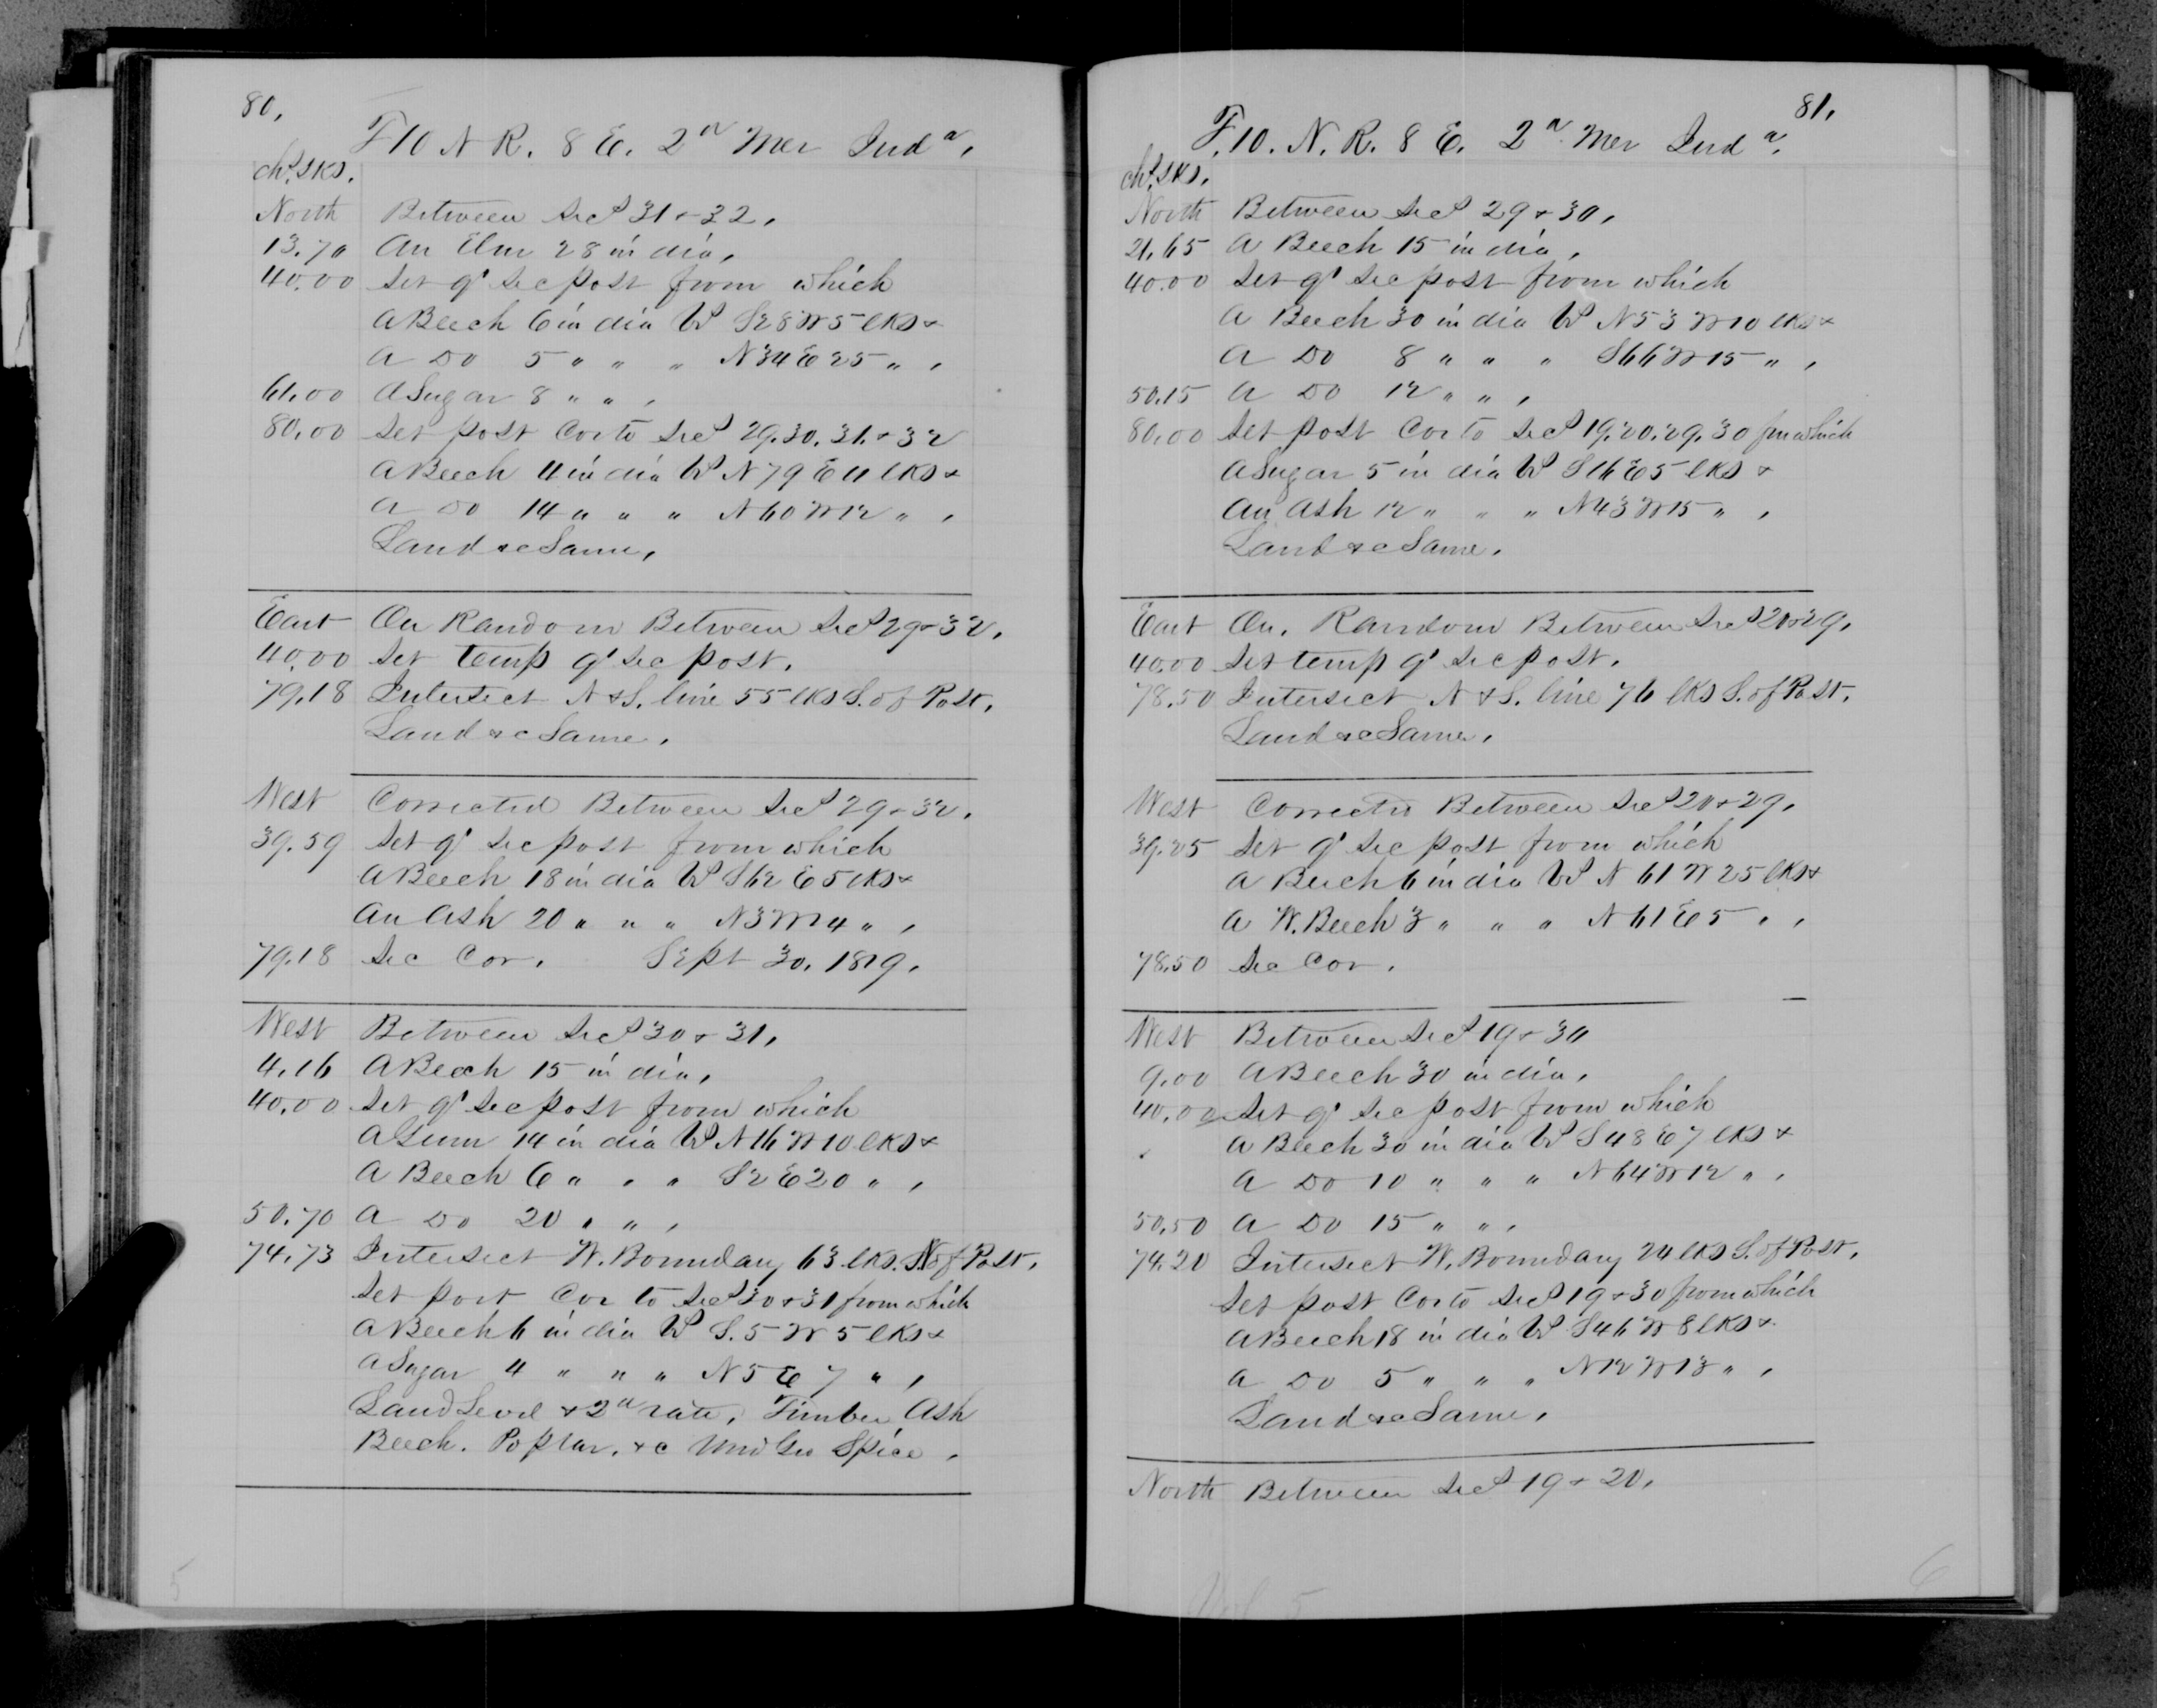 80.
T 10 N R. 8 E. 2d Mer Inda.
chs lks.
North Between Secs 31 & 32.
13.70 An Elm 28 in dia.
40.00 Set qr Sec post from which
A Beech 6 in dia Bs S28W5 lks &
A Do 5 " " " N34E25 " .
61.00 A Sugar 8 " " .
80.00 Set post Cor to Secs 29.30.31.& 32
A Beech 4 in dia Bs N79E11 lks &
A Do 14 " " " N60W12 " .
Land &c Same.
East On Random Between Secs 29 & 32.
40.00 Set temp qr Sec post.
79.18 Intersect N & S. line 55 lks S. of Post.
Land &c Same.
West Corrected Between Secs 29 & 32.
39.59 Set qr Sec post from which
A Beech 18 in dia Bs S62E5 lks &
An Ash 20 " " " N3W14 " .
79.18 Sec Cor. Sept 30. 1819.
West Between Secs 30 & 31.
4.16 A Beech 15 in dia.
40.00 Set qr Sec post from which
A Gum 14 in dia Bs N16W10 lks &
A Beech 6 " " " S2E20 " .
50.70 A Do 20 " " .
74.73 Intersect W. Boundary 63 lks. N of Post.
Set post Cor to Secs 30 & 31 from which
A Beech 6 in dia Bs S.5W5 lks &
A Sugar 4 " " " N5E7 " .
Land Level & 2d rate. Timber Ash
Beech. Poplar. &c Under Spice.
5
81.
T. 10. N. R. 8 E. 2d Mer Inda.
chs lks.
North Between Secs 29 & 30.
21.65 A Beech 15 in dia.
40.00 Set qr Sec post from which
A Beech 30 in dia Bs N53W10 lks &
A Do 8 " " " S66W15 " .
50.15 A Do 12 " " .
80.00 Set post Cor to Secs 19.20.29.30 fm which
A Sugar 5 in dia Bs S16E5 lks &
An Ash 12 " " " N43W15 " .
Land &c Same.
East On. Random Between Secs 20 & 29.
40.00 Set temp qr Sec post.
78.50 Intersect N & S. line 76 lks S. of Post.
Land &c Same.
West Corrected Between Secs 20 & 29.
39.25 Set qr Sec post from which
A Beech 6 in dia Bs N61W25 lks &
A W. Beech 3 " " " N61E5 " .
78.50 Sec Cor.
West Between Secs 19 & 30
9.00 A Beech 30 in dia.
40.00 Set qr Sec post from which
A Beech 30 in dia Bs S48E7 lks &
A Do 10 " " " N64W12 " .
50.50 A Do 15 " " .
74.20 Intersect W. Boundary 24 lks S. of Post.
Set post Cor to Secs 19 & 30 from which
A Beech 18 in dia Bs S46W8 lks &
A Do 5 " " " N12W13 " .
Land &c Same.
North Between Secs 19 & 20.
6